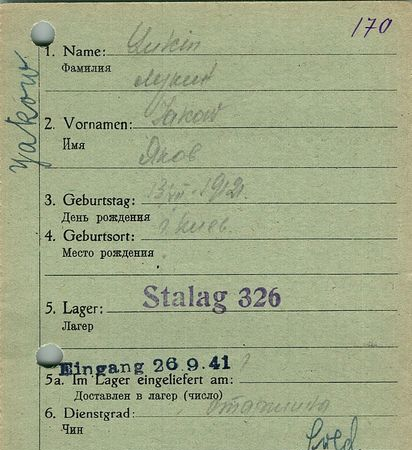 170
1. Name: Lukin
Фамилия Лукин
Yakow
2. Vornamen: Jakow
Имя Яков
3. Geburtstag: 1912
День рождения
4. Geburtsort: г. Киев
Место рождения
5. Lager: Stalag 326
Лагер
Eingang 26.9.41
5a. Im Lager eingeliefert am:
Доставлен в лагер (число)
6. Dienstgrad: старшина
Чин
Sold.